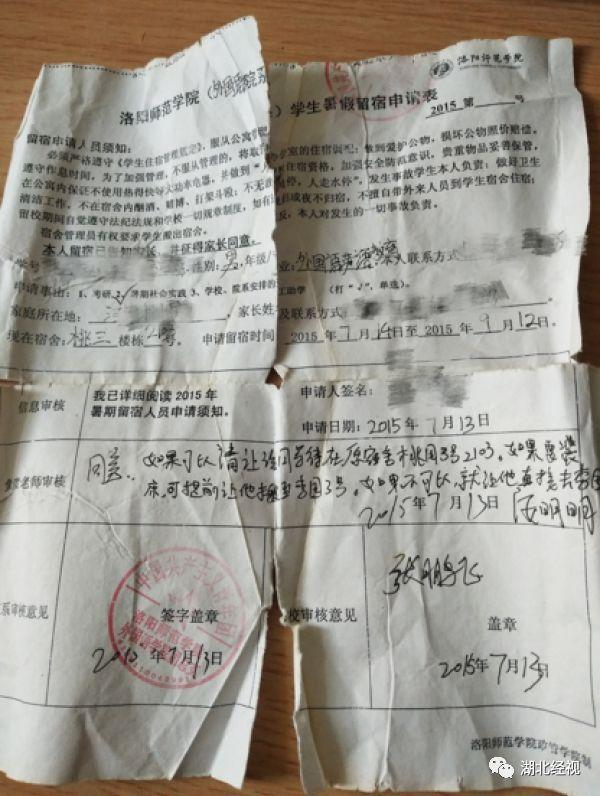 洛阳师范学院
洛阳师范学院（外国语学院系）学生暑假留宿申请表
2015 第 号
留宿申请人员须知：
必须严格遵守《学生住宿管理规定》，服从公寓
遵守作息时间，为了加强管理，不服从管理的，将取 住宿资格，加强安全防范意识，贵重物品妥善保管，
在公寓内保证不使用热得快等大功率电器，并做到“人 ，人走水停”，发生事故学生本人负责；做好卫生
清洁工作，不在宿舍内酗酒、赌博、打架斗殴；不无 或夜不归宿，不擅自带外来人员到学生宿舍住宿；
留校期间自觉遵守法纪法规和学校一切规章制度，如有 反，本人对发生的一切事故负责。
宿舍管理员有权要求学生搬出宿舍。
本人留宿已告知家长，并征得家长同意。
学号 性别：男，年级/ 业：外国语 本人联系方式
申请事由：1、考研 2、暑期社会实践 3、学校、院系安排的 工助学 （打“√”，单选）。
家庭所在地： 家长姓 及联系方式
现在宿舍：桃三 楼栋 号。 申请留宿时间 2015年7月14日至2015年9月12日。
信息审核
我已详细阅读 2015 年
暑期留宿人员申请须知。
申请人签名：
申请日期：2015年7月13日
老师审核
同意。如果可以请让该同学待在原宿舍桃园3号2103。如果要装
床，可提前让他搬至李园3号。如果不可以，就让他直接去李园
2015年7月13日 汤明明
系审核意见
中国共产主义青年团
洛阳师范学院
签字盖章
2015年7月13日
校审核意见
张鹏飞
盖章
2015年7月13日
洛阳师范学院 制
湖北经视